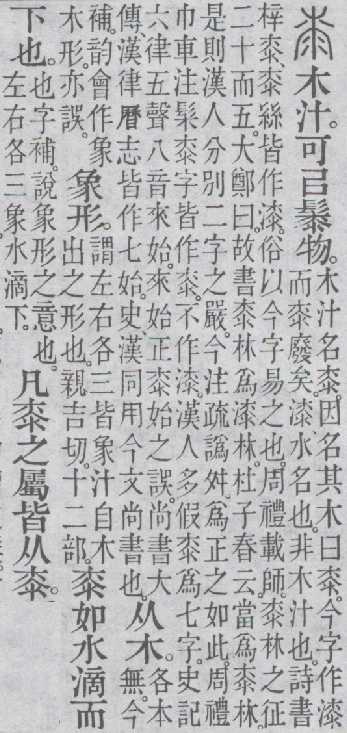 桼木汁。可㠯䰍物。木汁名桼。因名其木曰桼。今字作漆
而桼廢矣。漆水名也。非木汁也。詩書
梓桼、桼絲皆作漆。俗以今字易之也。周禮載師。桼林之征
二十而五。大鄭曰。故書桼林爲漆林。杜子春云。當爲桼林。
是則漢人分別二字之嚴。今注疏譌舛。爲正之如此。周禮
巾車注髤桼字皆作桼。不作漆。漢人多假桼爲七字。史記
六律五聲八音來始。來始正桼始之誤。尚書大
傳、漢律曆志皆作七始。史漢同用今文尚書也。
从木。各本
無。今
補。韵會作象
木形。亦誤。
象形。謂左右各三皆象汁自木
出之形也。親吉切。十二部。
桼如水滴而
下也。也字補。說象形之意也。
左右各三象水滴下。
凡桼之屬皆从桼。